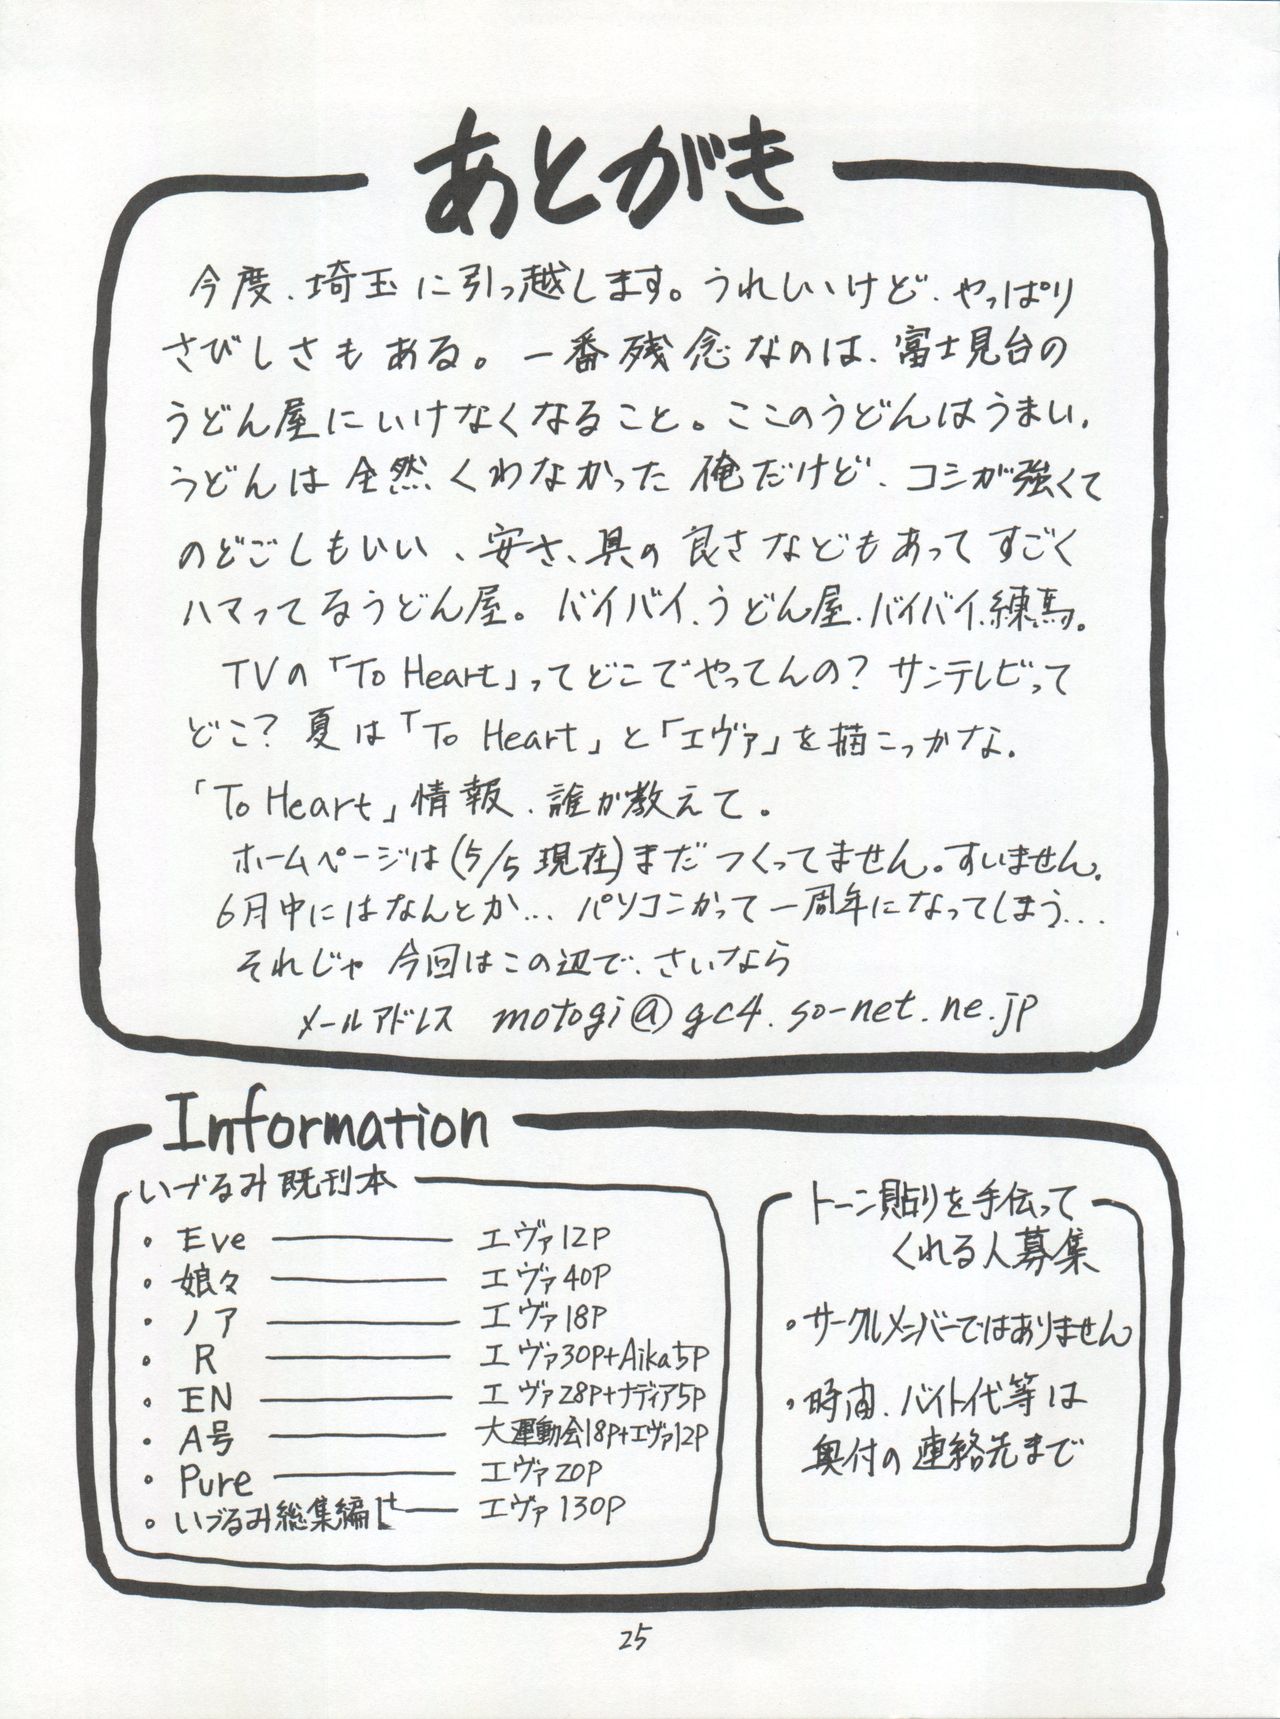 あとがき
今度、埼玉に引っ越します。うれしいけど、やっぱり
さびしさもある。一番残念なのは、富士見台の
うどん屋にいけなくなること。ここのうどんはうまい。
うどんは全然くわなかった俺だけど、コシが強くて
のどごしもいい、安さ、具の良さなどもあってすごく
ハマってるうどん屋。バイバイ、うどん屋、バイバイ、練馬。
TVの「To Heart」ってどこでやってんの?サンテレビって
どこ?夏は「To Heart」と「エヴァ」を描こっかな。
「To Heart」情報、誰か教えて。
ホームページは(5/5 現在)まだつくってません。すいません。
6月中にはなんとか… パソコンかって一周年になってしまう…
それじゃ今回はこの辺で、さいなら
メールアドレス motogi@gc4.so-net.ne.jp
Information
いづるみ既刊本
・Eve ― エヴァ12P
・娘々 ― エヴァ40P
・ノア ― エヴァ18P
・R ― エヴァ30P+Aika5P
・EN ― エヴァ28P+ナディア5P
・A号 ― 大運動会18P+エヴァ12P
・Pure ― エヴァ20P
・いづるみ総集編 ― エヴァ130P
トーン貼りを手伝って
くれる人募集
・サークルメンバーではありません
・時間、バイト代等は
奥付の連絡先まで
25